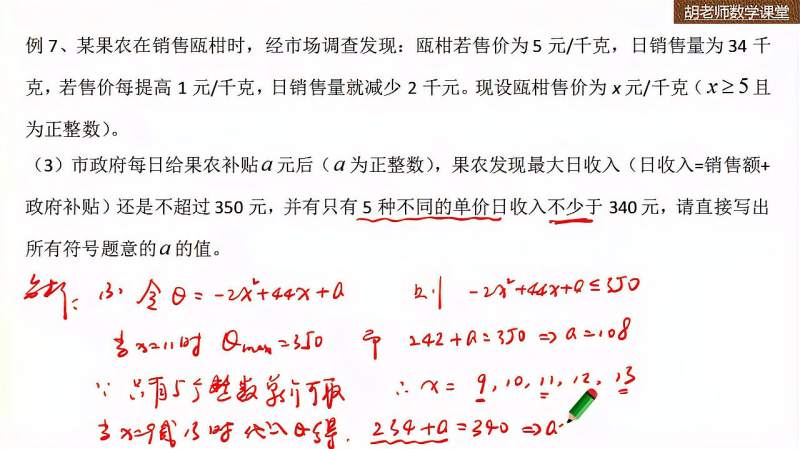 胡老师数学课堂
例 7、某果农在销售瓯柑时，经市场调查发现：瓯柑若售价为 5 元/千克，日销售量为 34 千
克，若售价每提高 1 元/千克，日销售量就减少 2 千元。现设瓯柑售价为 x 元/千克（x≥5且
为正整数）。
（3）市政府每日给果农补贴a元后（a为正整数），果农发现最大日收入（日收入=销售额+
政府补贴）还是不超过 350 元，并有只有 5 种不同的单价日收入不少于 340 元，请直接写出
所有符号题意的a的值。
分析： (3) 令 Q = -2x²+44x+a 则 -2x²+44x+a≤350
当x=11时 Qmax=350 即 242+a=350 ⇒ a=108
∵ 只有5个整数单价可取 ∴ x= 9, 10, 11, 12, 13
当x=9或13时 代入Q得. 234+a=340 ⇒a